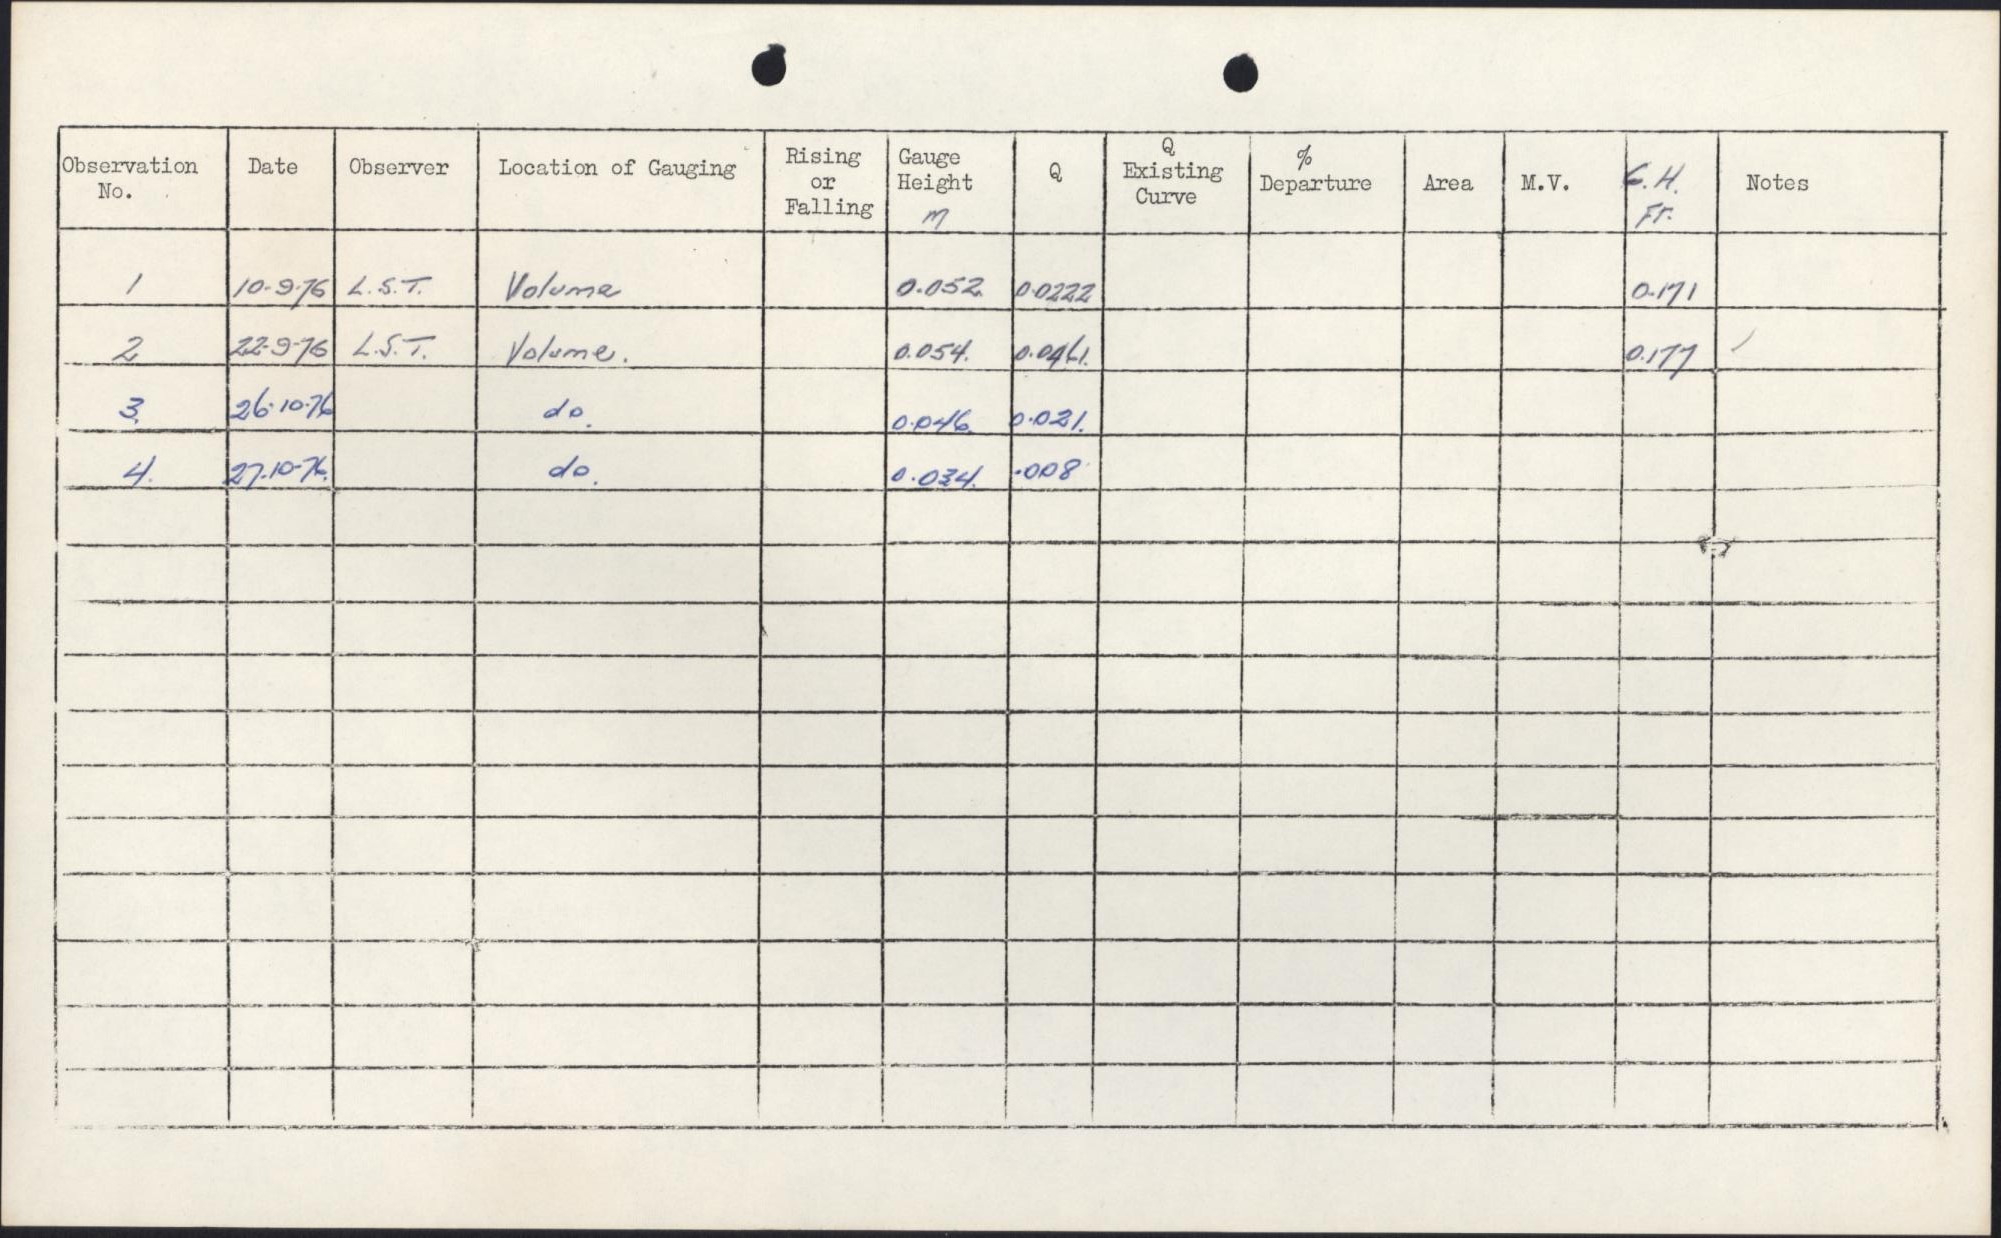 Observation No. Date Observer Location of Gauging Rising or Falling Gauge Height m Q Q Existing Curve % Departure Area M.V. G.H. Ft. Notes
1 10-9-76 L.S.T. Volume 0.052 0.0222 0.171
2 22-9-76 L.S.T. Volume. 0.054. 0.0461. 0.177
3. 26-10-76 do. 0.046. 0.021.
4. 27-10-76. do. 0.034. .008